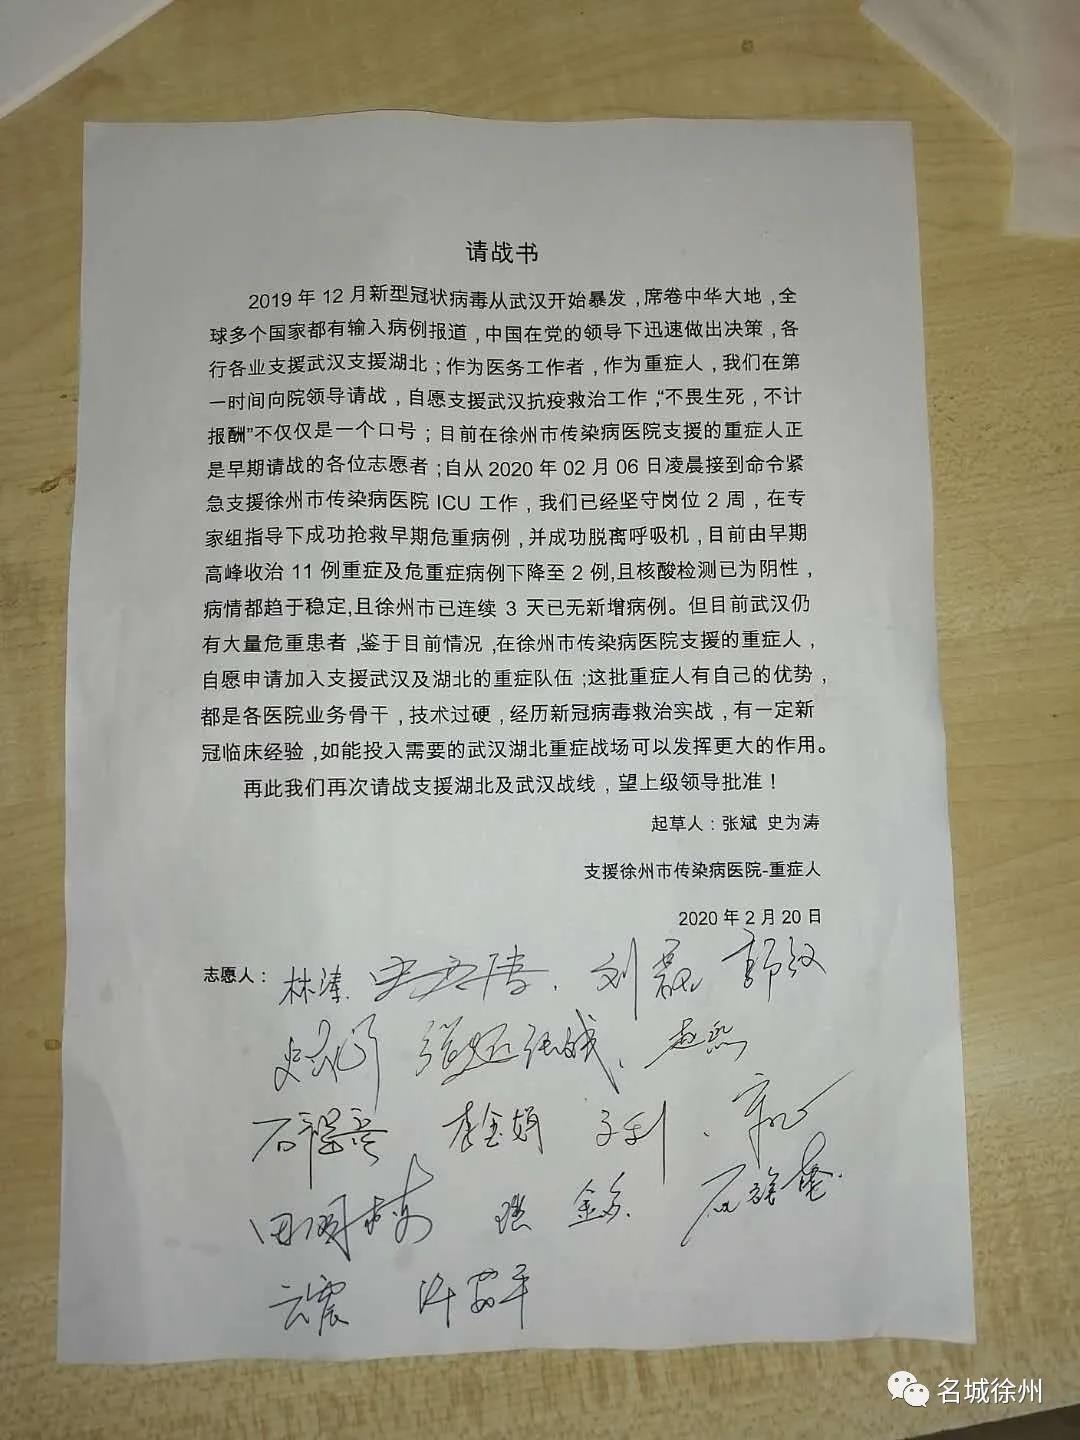 请战书
2019 年 12 月新型冠状病毒从武汉开始暴发，席卷中华大地，全
球多个国家都有输入病例报道，中国在党的领导下迅速做出决策，各
行各业支援武汉支援湖北；作为医务工作者，作为重症人，我们在第
一时间向院领导请战，自愿支援武汉抗疫救治工作，“不畏生死，不计
报酬”不仅仅是一个口号；目前在徐州市传染病医院支援的重症人正
是早期请战的各位志愿者；自从 2020 年 02 月 06 日凌晨接到命令紧
急支援徐州市传染病医院 ICU 工作，我们已经坚守岗位 2 周，在专
家组指导下成功抢救早期危重病例，并成功脱离呼吸机，目前由早期
高峰收治 11 例重症及危重症病例下降至 2 例,且核酸检测已为阴性，
病情都趋于稳定,且徐州市已连续 3 天已无新增病例。但目前武汉仍
有大量危重患者，鉴于目前情况，在徐州市传染病医院支援的重症人，
自愿申请加入支援武汉及湖北的重症队伍；这批重症人有自己的优势，
都是各医院业务骨干，技术过硬，经历新冠病毒救治实战，有一定新
冠临床经验，如能投入需要的武汉湖北重症战场可以发挥更大的作用。
再此我们再次请战支援湖北及武汉战线，望上级领导批准！
起草人：张斌 史为涛
支援徐州市传染病医院-重症人
2020 年 2 月 20 日
志愿人： 史为涛 刘磊
李金娟
云震
名城徐州